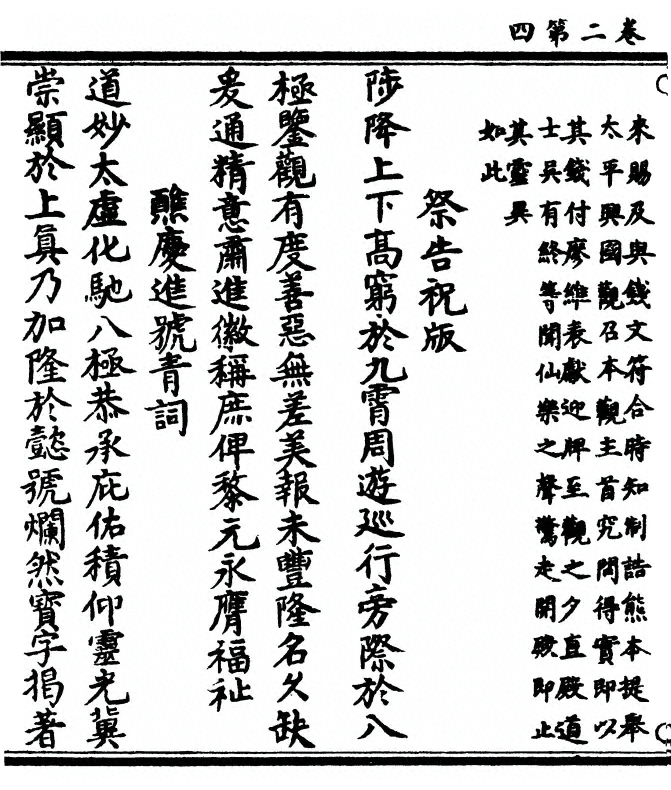 卷二第四
來賜及與錢文符合時知制誥熊本提舉
太平興國觀召本觀主首究問得實即以
其錢付廖維表獻迎牌至觀之夕直殿道
士吳有終等聞仙樂之聲驚走開殿即止
其靈異
如此
祭告祝版
陟降上下高窮於九霄周遊廵行旁際於八
極鑒觀有度善惡無差美報未豐隆名久缺
爰通精意肅進徽稱庶俾黎元永膺福祉
醮慶進號青詞
道妙太虛化馳八極恭承庇佑積仰靈光冀
崇顯於上眞乃加隆於懿號爛然寶字揭著